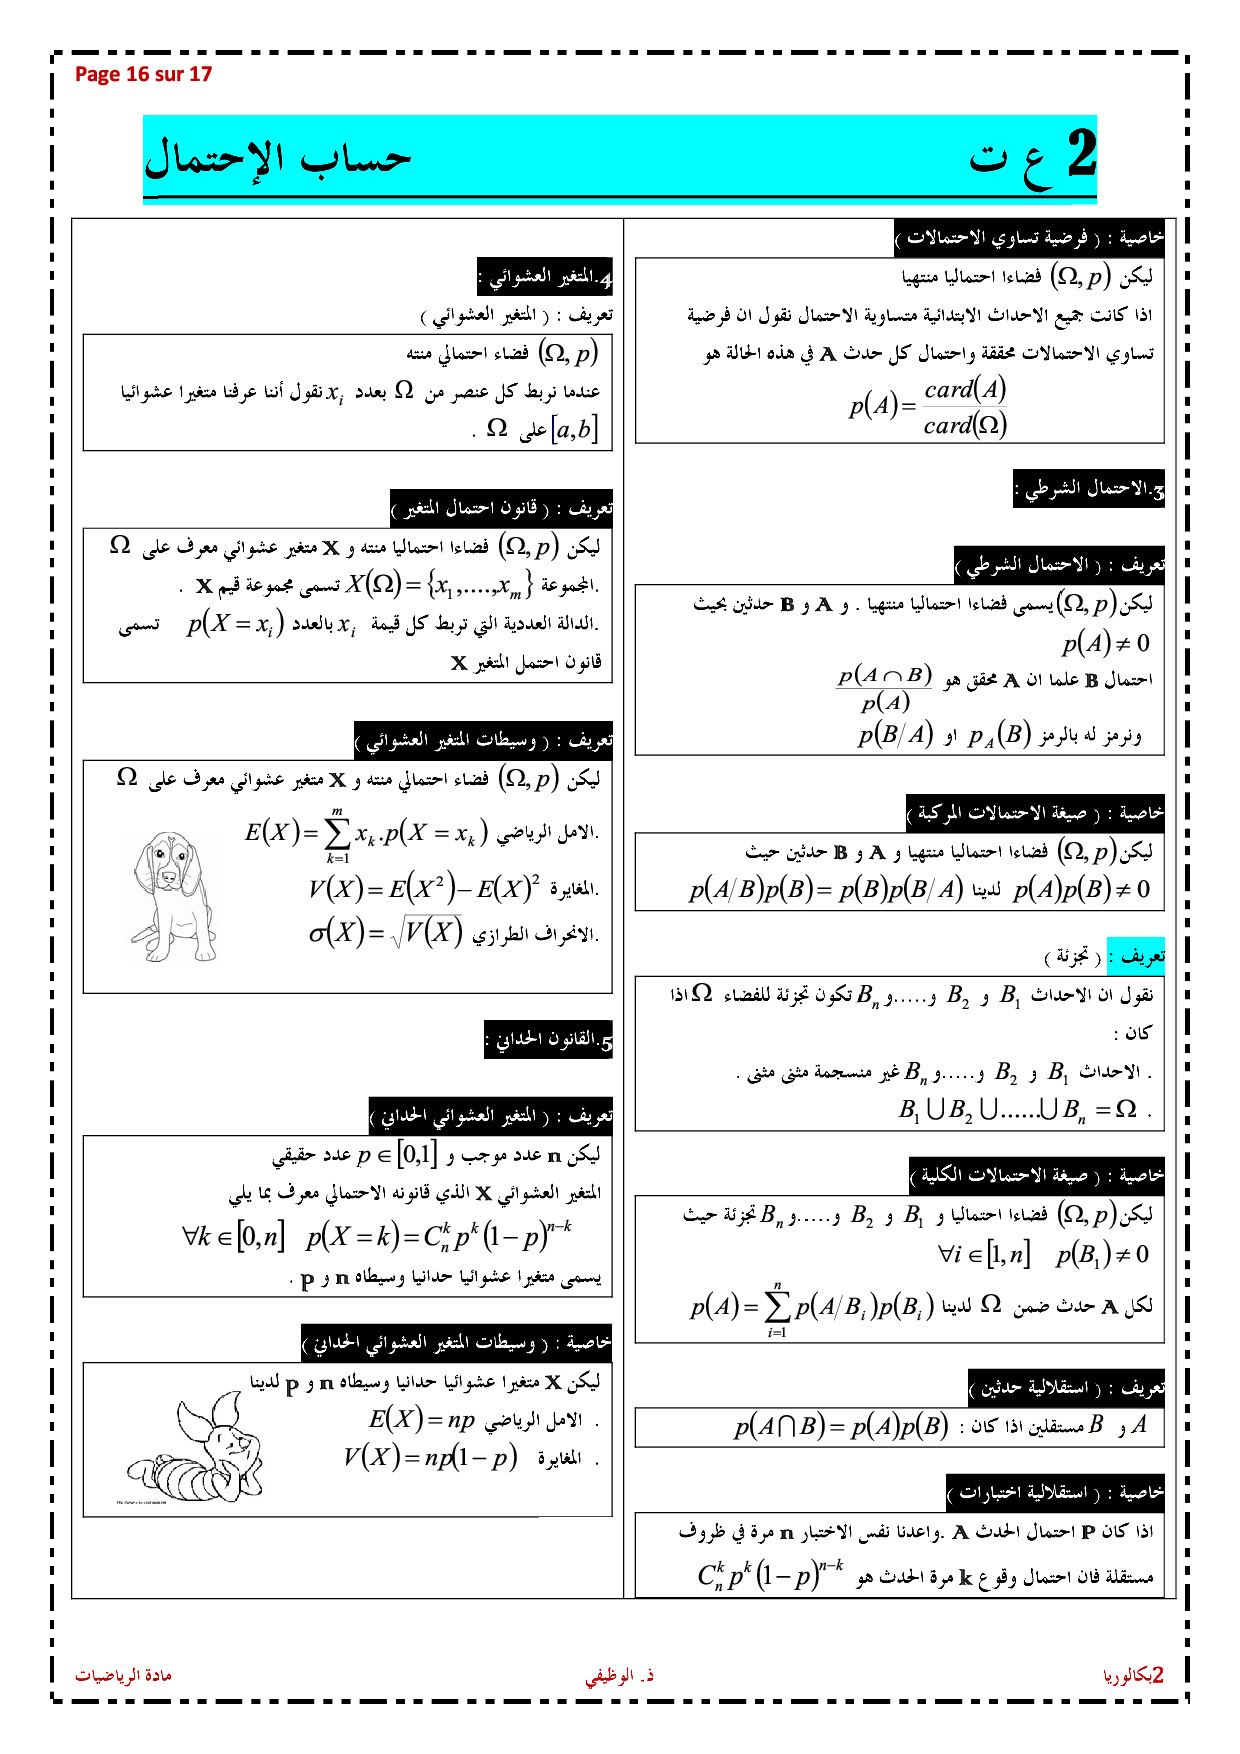 Page 16 sur 17
2 ع ت حساب الإحتمال
خاصية : ( فرضية تساوي الاحتمالات )
ليكن (Ω, p) فضاءا احتماليا منتهيا
اذا كانت جميع الاحداث الابتدائية متساوية الاحتمال نقول ان فرضية
تساوي الاحتمالات محققة واحتمال كل حدث A في هذه الحالة هو
p(A) = card(A) / card(Ω)
3.الاحتمال الشرطي :
تعريف : ( الاحتمال الشرطي )
ليكن (Ω, p) يسمى فضاءا احتماليا منتهيا . و A و B حدثين بحيث
p(A) ≠ 0
احتمال B علما ان A محقق هو p(A ∩ B) / p(A)
ونرمز له بالرمز p_A(B) او p(B/A)
خاصية : ( صيغة الاحتمالات المركبة )
ليكن (Ω, p) فضاءا احتماليا منتهيا و A و B حدثين حيث
p(A)p(B) ≠ 0 لدينا p(A/B)p(B) = p(B)p(B/A)
تعريف : ( تجزئة )
نقول ان الاحداث B₁ و B₂ و.....و Bₙ تكون تجزئة للفضاء Ω اذا
كان :
. الاحداث B₁ و B₂ و.....و Bₙ غير منسجمة مثنى مثنى .
. B₁ ∪ B₂ ∪ ...... ∪ Bₙ = Ω
خاصية : ( صيغة الاحتمالات الكلية )
ليكن (Ω, p) فضاءا احتماليا و B₁ و B₂ و.....و Bₙ تجزئة حيث
∀i ∈ [1, n] p(B₁) ≠ 0
لكل A حدث ضمن Ω لدينا p(A) = ∑_{i=1}^{n} p(A/Bᵢ)p(Bᵢ)
تعريف : ( استقلالية حدثين )
A و B مستقلين اذا كان : p(A ∩ B) = p(A)p(B)
خاصية : ( استقلالية اختبارات )
اذا كان P احتمال الحدث A .واعدنا نفس الاختبار n مرة في ظروف
مستقلة فان احتمال وقوع k مرة الحدث هو C_n^k p^k (1 − p)^{n−k}
4.المتغير العشوائي :
تعريف : ( المتغير العشوائي )
(Ω, p) فضاء احتمالي منته
عندما نربط كل عنصر من Ω بعدد xᵢ نقول أننا عرفنا متغيرا عشوائيا
[a,b] على Ω .
تعريف : ( قانون احتمال المتغير )
ليكن (Ω, p) فضاءا احتماليا منته و X متغير عشوائي معرف على Ω
.المجموعة X(Ω) = {x₁,....,x_m} تسمى مجموعة قيم X .
.الدالة العددية التي تربط كل قيمة xᵢ بالعدد p(X = xᵢ) تسمى
قانون احتمل المتغير X
تعريف : ( وسيطات المتغير العشوائي )
ليكن (Ω, p) فضاء احتمالي منته و X متغير عشوائي معرف على Ω
.الامل الرياضي E(X) = ∑_{k=1}^{m} x_k.p(X = x_k)
.المغايرة V(X) = E(X²) − E(X)²
.الانحراف الطرازي σ(X) = √V(X)
5.القانون الحداني :
تعريف : ( المتغير العشوائي الحداني )
ليكن n عدد موجب و p ∈ [0,1] عدد حقيقي
المتغير العشوائي X الذي قانونه الاحتمالي معرف بما يلي
∀k ∈ [0, n] p(X = k) = C_n^k p^k (1 − p)^{n−k}
يسمى متغيرا عشوائيا حدانيا وسيطاه n و p .
خاصية : ( وسيطات المتغير العشوائي الحداني )
ليكن X متغيرا عشوائيا حدانيا وسيطاه n و p لدينا
. الامل الرياضي E(X) = np
. المغايرة V(X) = np(1 − p)
2بكالوريا ذ. الوظيفي مادة الرياضيات